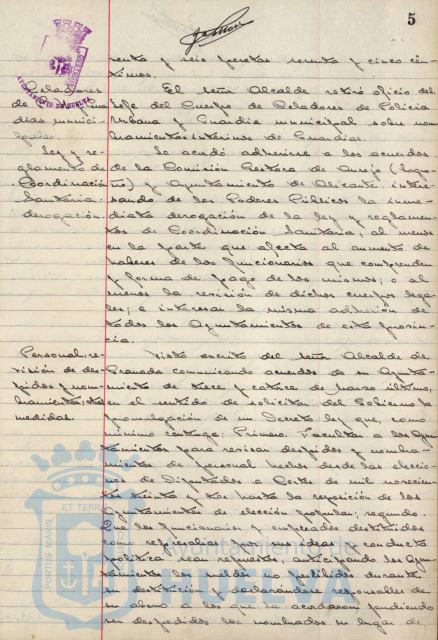 5
renta y seis pesetas setenta y cinco cén-
timos.
Celadores
de
dias munici-
pales.
El señor Alcalde retiró oficio del
Jefe del Cuerpo de Celadores de Policía
Urbana y Guardia municipal sobre nom-
bramientos interinos de Guardias.
Ley y re-
glamento de
Coordinación
Sanitaria:
derogación.
Se acordó adherirse a los acuerdos
de la Comisión Gestora de Arnejo (Logro-
ño) y Ayuntamiento de Alicante intere-
sando de los Poderes Públicos la inme-
diata derogación de la ley y reglamen-
tos de Coordinación Sanitaria, al menos
en la parte que afecta al aumento de
haberes de los funcionarios que comprenden
y forma de pago de los mismos; o al
menos la revisión de dichos cuerpos lega-
les; e interesar la misma adhesión de
todos los Ayuntamientos de esta provin-
cia.
Personal: re-
visión de des-
pidos y nom-
bramientos; otras
medidas.
Visto escrito del señor Alcalde de
Granada comunicando acuerdos de su Ayunta-
miento de trece y catorce de marzo último,
en el sentido de solicitar del Gobierno la
promulgación de un Decreto ley que, como
mínimo contenga: Primero. Facultar a los Ayun-
tamientos para revisar despidos y nombra-
mientos de personal hechos desde las eleccio-
nes de Diputados a Cortes de mil novecien-
tos treinta y tres hasta la reposición de los
Ayuntamientos de elección popular; segundo.
Que los funcionarios y empleados destituidos
como represalias por sus ideas y conducta
política sean repuestos, anticipando los Ayun-
tamientos los sueldos no percibidos durante
su destitución y declarándose responsables de
su abono a los que la acordaron pudiendo
ser despedidos los nombrados en lugar de
PORTUS MARIS
ET TERRAE
Ayuntamiento de
HUELVA